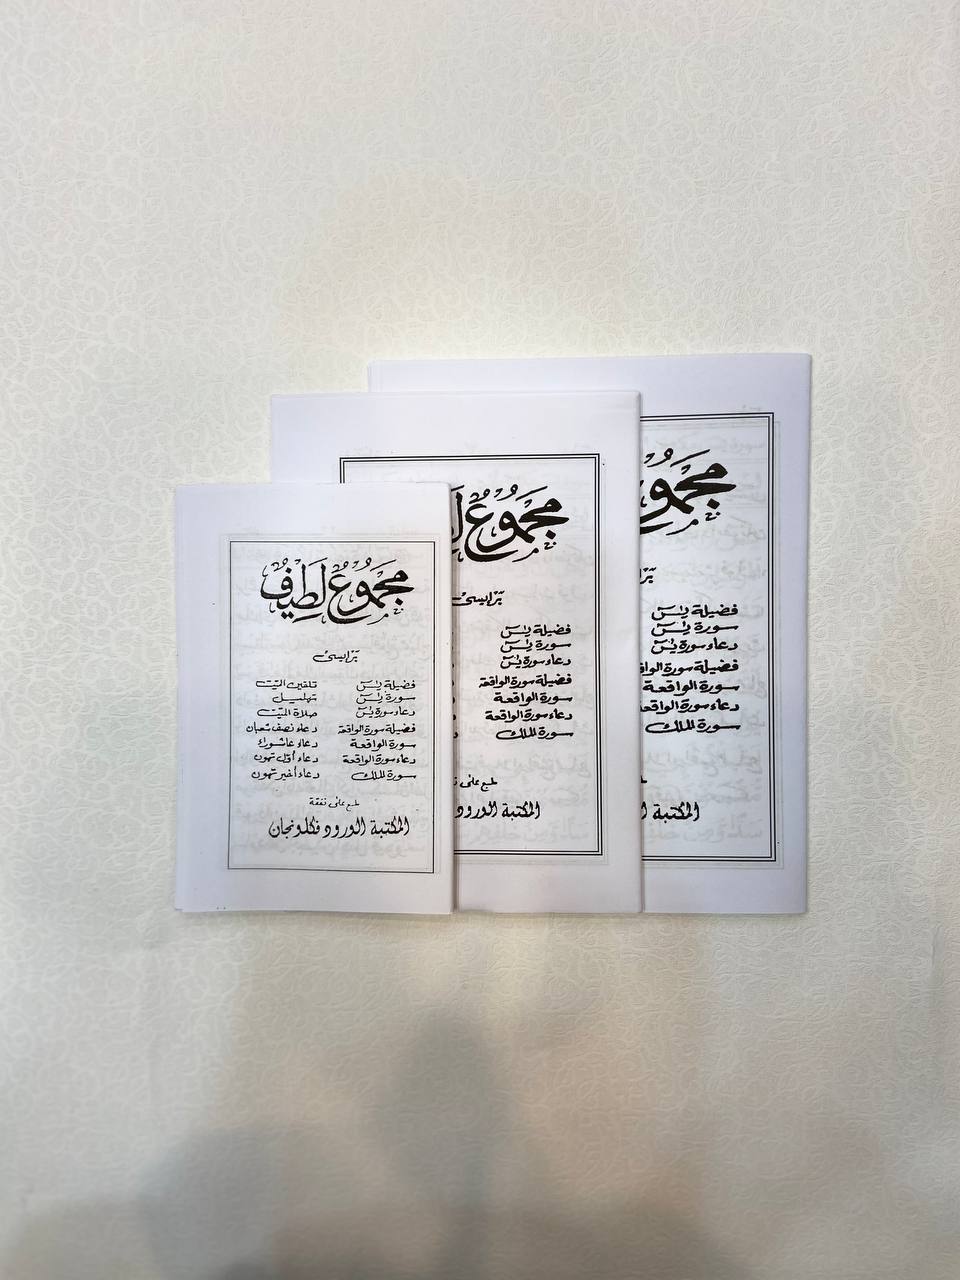 مجموع لطيف
برايسى
فضيلة يٰسٓ
سورة يٰسٓ
دعاء سورة يٰسٓ
فضيلة سورة الواقعة
سورة الواقعة
دعاء سورة الواقعة
سورة الملك
تلقين الميّت
تهليل
صلاة الميّت
دعاء نصف شعبان
دعاء عاشوراء
دعاء أول تهون
دعاء أخير تهون
طبع على نفقة
المكتبة الورود فكلونجان
مجموع
برايسى
فضيلة يٰسٓ
سورة يٰسٓ
دعاء سورة يٰسٓ
فضيلة سورة الواقعة
سورة الواقعة
دعاء سورة الواقعة
سورة الملك
طبع على
المكتبة الورود
فضيلة يٰسٓ
سورة يٰسٓ
دعاء سورة يٰسٓ
فضيلة سورة
سورة الواقعة
دعاء سورة الواقعة
سورة الملك
المكتبة